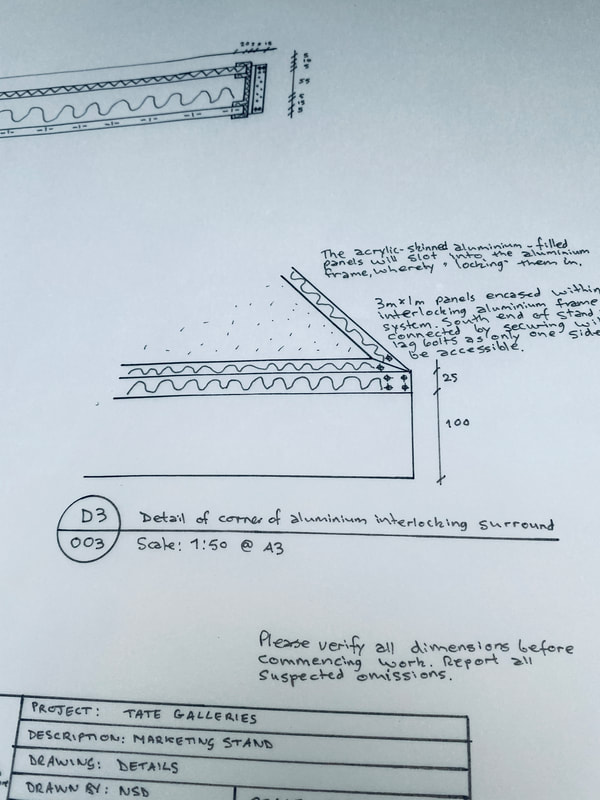 The acrylic-skinned aluminium-filled
panels will slot into the aluminium
frame, whereby "locking" them in.
3m x 1m panels encased within
interlocking aluminium frame
system. South end of stand
connected by securing
lag bolts as only one side
be accessible.
25
100
D3
003
Detail of corner of aluminium interlocking surround
Scale: 1:50 @ A3
Please verify all dimensions before
commencing work. Report all
suspected omissions.
PROJECT: TATE GALLERIES
DESCRIPTION: MARKETING STAND
DRAWING: DETAILS
DRAWN BY: NSD